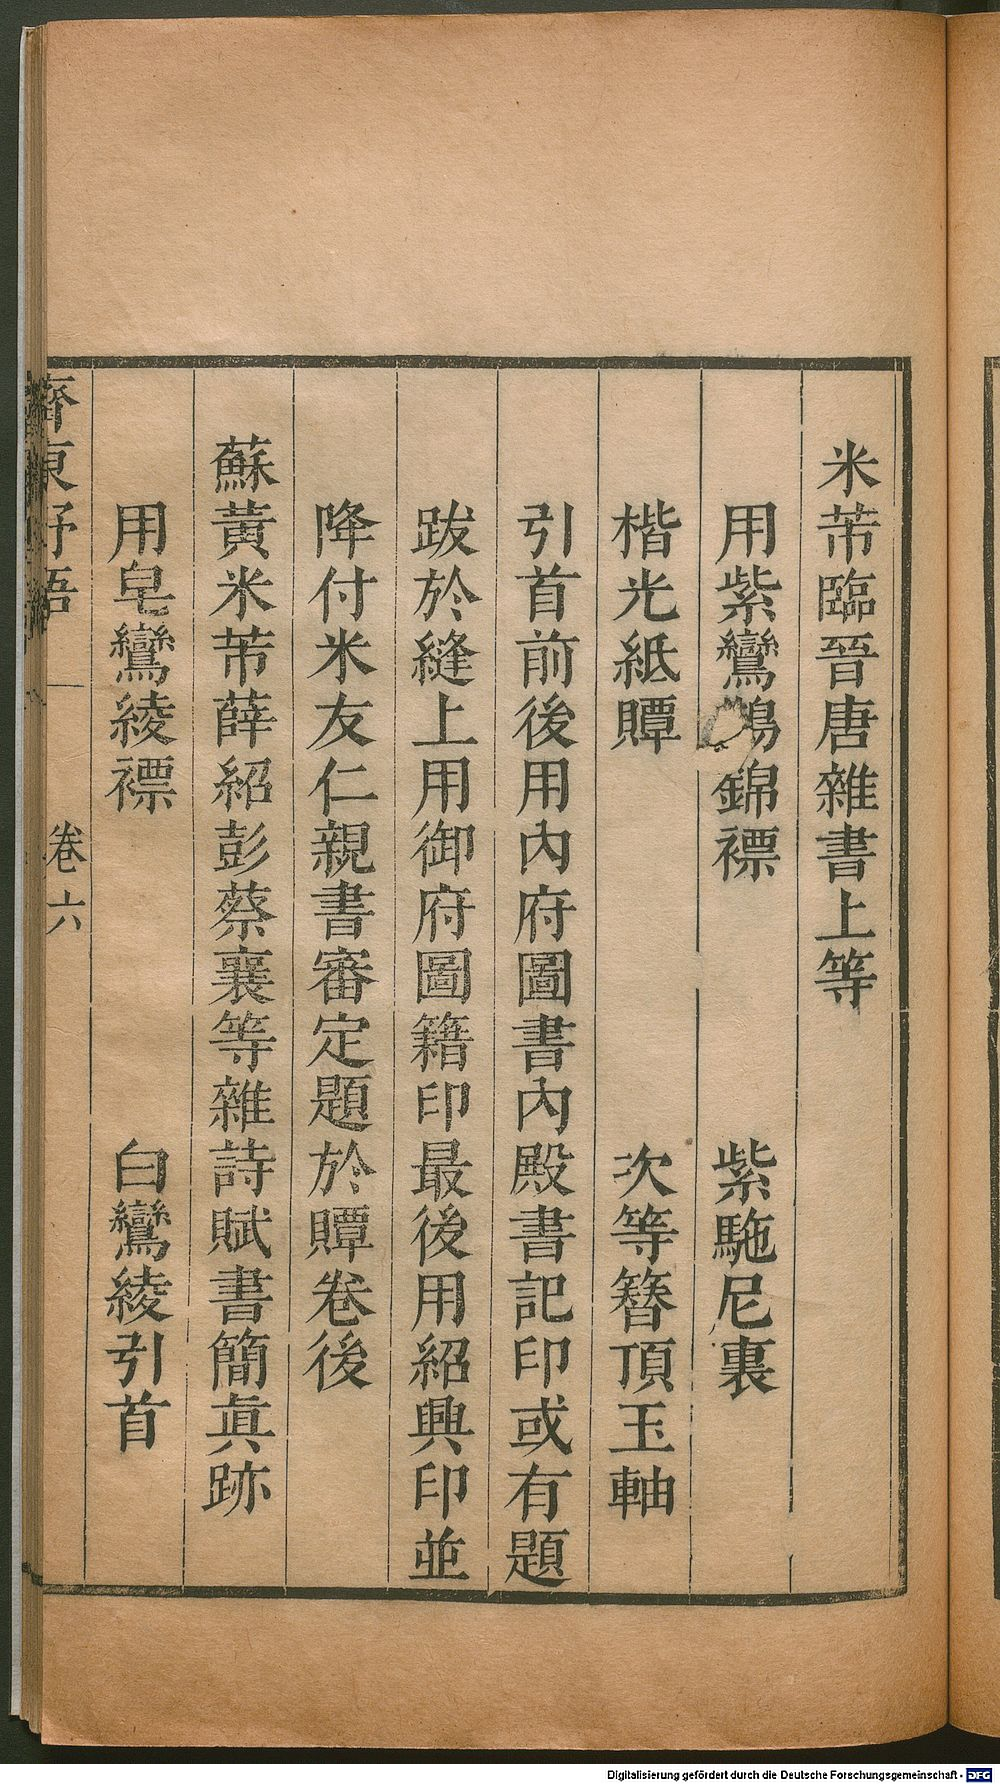 米芾臨晉唐雜書上等
用紫鸞鵲錦褾　紫駞尼裏
楷光紙贉　次等簪頂玉軸
引首前後用內府圖書內殿書記印或有題
跋於縫上用御府圖籍印最後用紹興印並
降付米友仁親書審定題於贉卷後
蘇黃米芾薛紹彭蔡襄等雜詩賦書簡眞跡
用皂鸞綾褾　白鸞綾引首
齊東野語　卷六
Digitalisierung gefördert durch die Deutsche Forschungsgemeinschaft - DFG